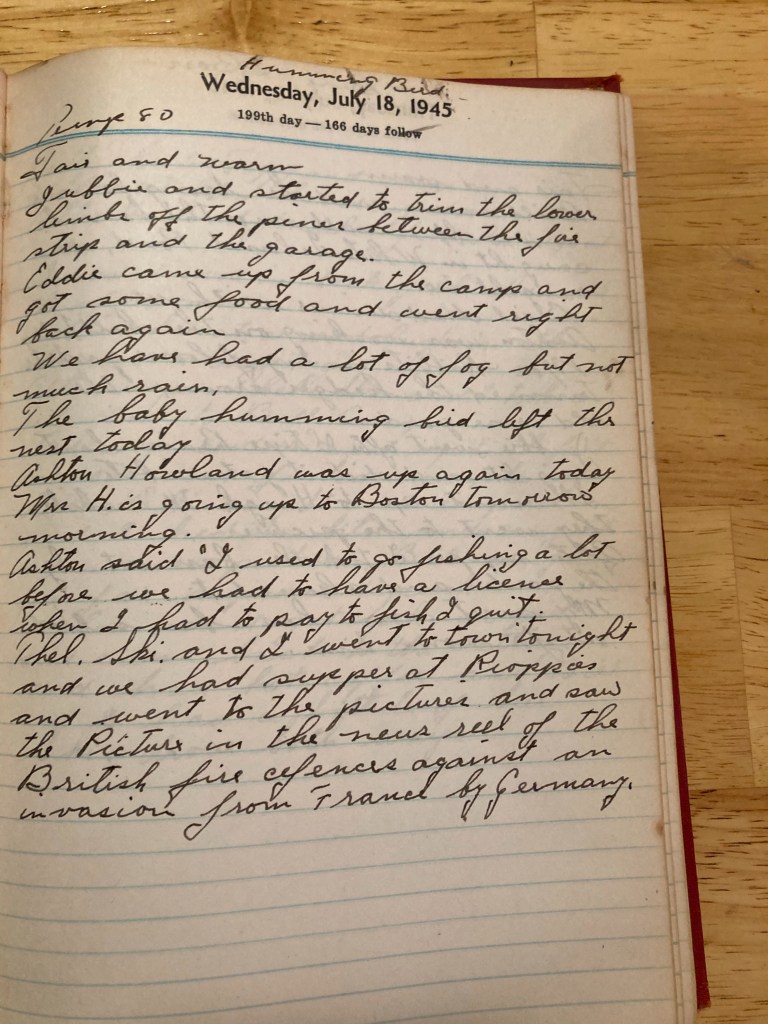 Humming Bird.
Wednesday, July 18, 1945
199th day — 166 days follow
80
Fair and warm
Jubbie and started to trim the lower
limbs off the pines between the fire
strip and the garage.
Eddie came up from the camp and
got some food and went right
back again
We have had a lot of fog but not
much rain.
The baby humming bird left the
nest today
Ashton Howland was up again today
Mrs H. is going up to Boston tomorrow
morning.
Ashton said "I used to go fishing a lot
before we had to have a licence
when I had to pay to fish, I quit.
Thel. Ski. and I went to town tonight
and we had supper at
and went to the pictures and saw
the Picture in the news reel of the
British fire cefences against an
invasion from France by Germany.